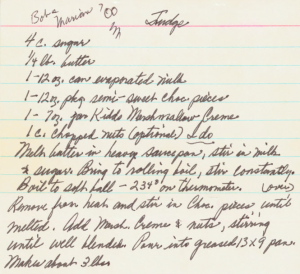 Bob & Marian '00 Fudge
4 c. sugar
1/4 lb. butter
1-12 oz. can evaporated milk
1-12 oz. pkg. semi-sweet choc pieces
1-7 oz. jar Kidds Marshmallow Creme
1 c. chopped nuts (optional) I do
Melt butter in heavy saucepan, stir in milk
& sugar. Bring to rolling boil, stir constantly.
Boil to soft ball - 234° on thermometer. (over)
Remove from heat and stir in Choc pieces until
melted. Add Marsh. Creme & nuts, stirring
until well blended. Pour into greased 13x9 pan.
Makes about 3 lbs